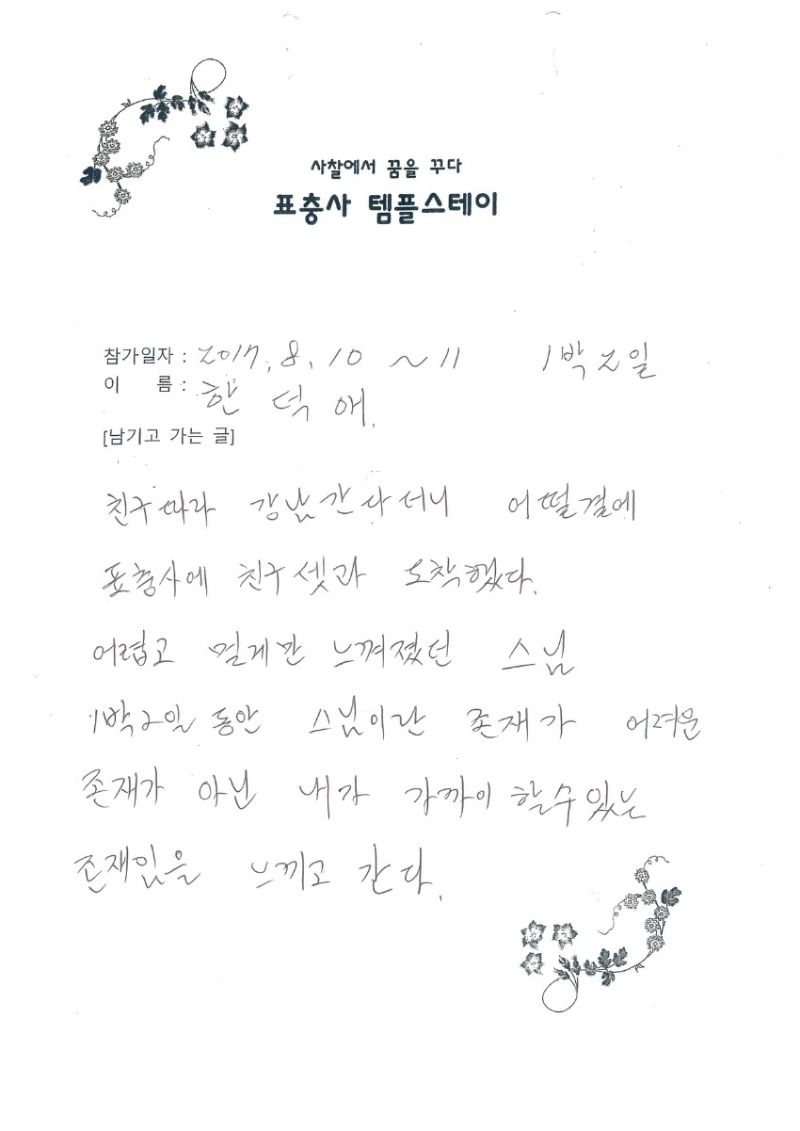 사찰에서 꿈을 꾸다
표충사 템플스테이
참가일자 : 2017. 8. 10 ~ 11 1박 2일
이 름 : 한 덕 애.
[남기고 가는 글]
친구따라 강남간다더니 어떨결에
표충사에 친구셋과 도착했다.
어렵고 멀게만 느껴졌던 스님
1박2일 동안 스님이란 존재가 어려운
존재가 아닌 내가 가까이 할수있는
존재임을 느끼고 간다.